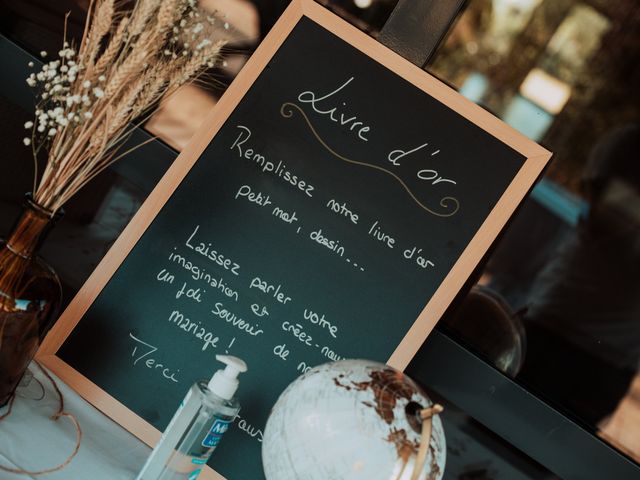 Livre d'or
Remplissez notre livre d'or
Petit mot, dessin...
Laissez parler votre
imagination et créez-nous
un joli souvenir de
mariage !
Merci